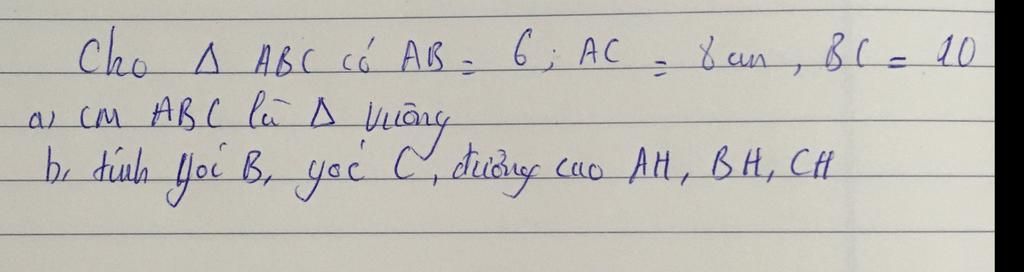 Cho Δ ABC có AB = 6; AC = 8cm, BC = 10
a, CM ABC là Δ vuông
b, tính góc B, góc C, đường cao AH, BH, CH